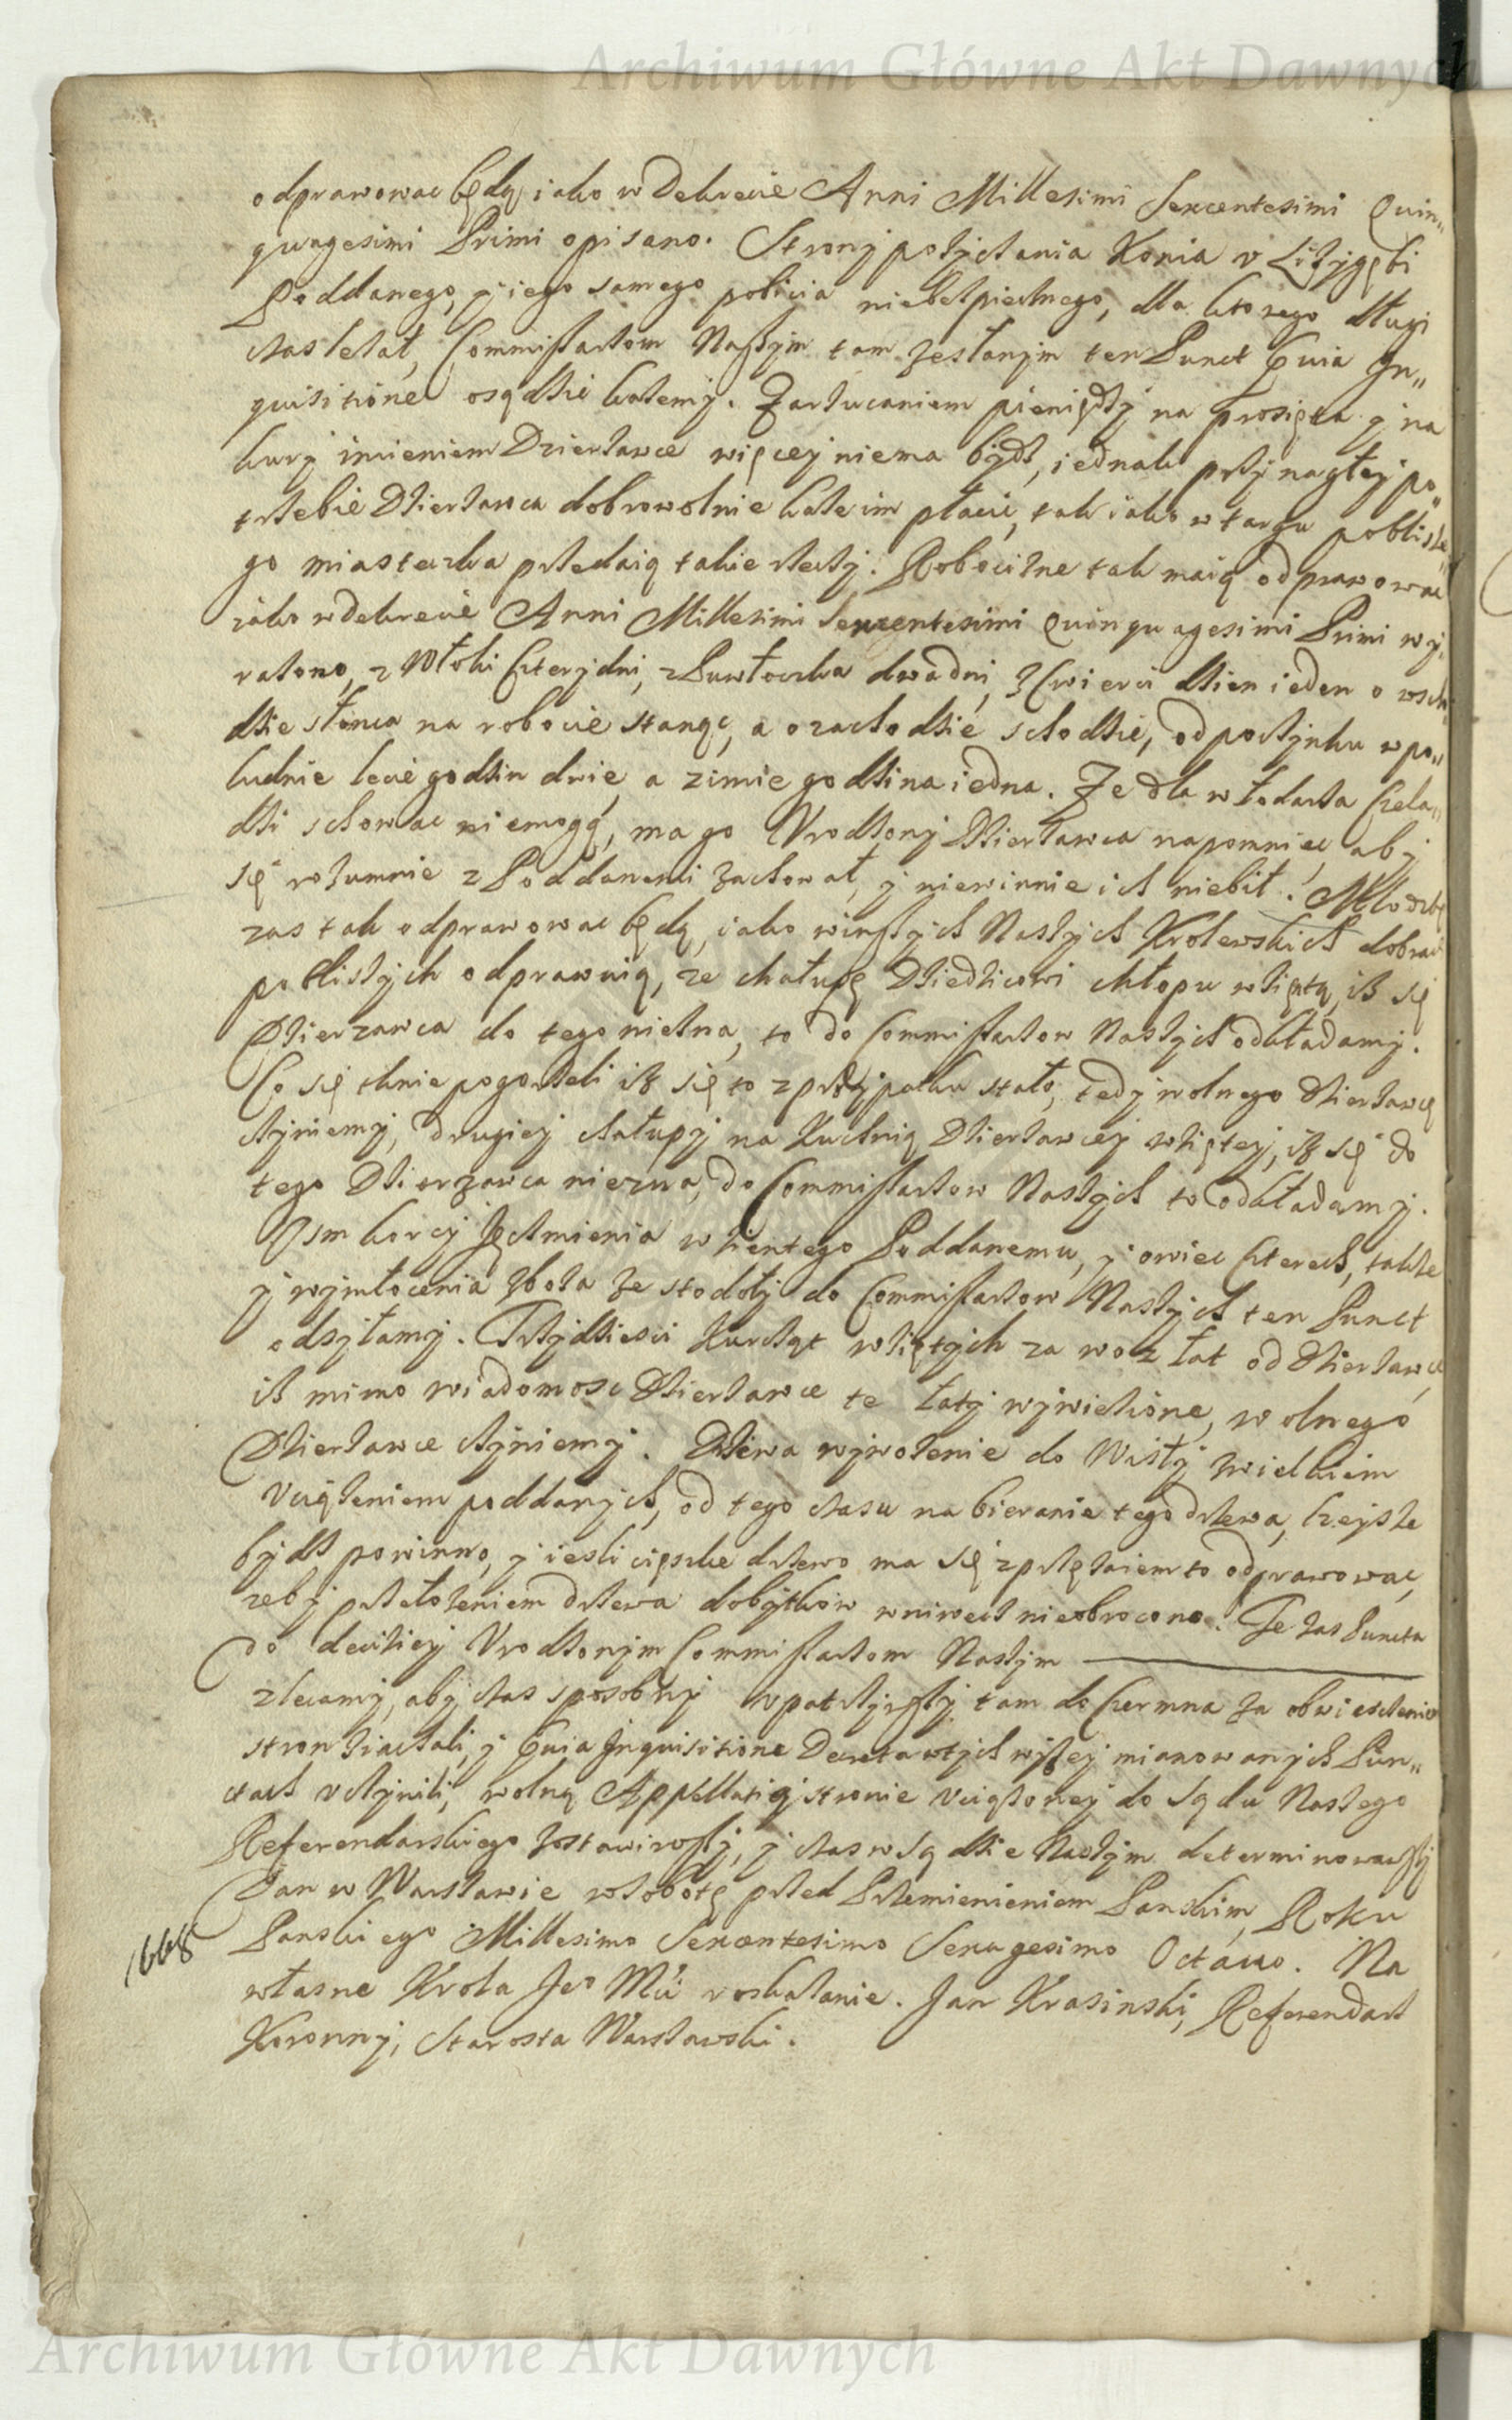 Archiwum Główne Akt Dawnych
odprawowac będą iako w Dekrecie Anni Millesimi Sexcentesimi Quin„
quagesimi Primi opisano. Strony pożyczania Konia v Liżygębi
Poddanego, y iego samego pobicia niebespiecznego, dla ktorego długi
czas leżał, Commissarzom Naszym tam zesłanym ten Punct Prævia In„
quisitione osądzić każemy. Zarzucaniem pieniędzy na prosięta y na
kury imieniem Dzierżawce więcey niema bydź, iednak przy nagłey po„
trzebie Dzierżawca dobrowolnie każe im płacić, tak iako w targu pobliskie„
go miasteczka przedaią takie rzeczy. Robociznę tak maią odprawować
iako w dekrecie Anni Millesimi Sexcentesimi Quinquagesimi Primi wy„
rażono, z Włoki Cztery dni, z Puwłoczka dwa dni, z Cwierci dzien ieden o wscho„
dzie słonca na robocie stanąć, a o zachodzie schodzić, odpoczynku w po„
łudnie lecie godzin dwie, a zimie godzina iedna. Że dla włodarza Czela„
dzi schować niemogą, ma go Vrodzony Dzierżawca napomnieć aby
się rozumnie z Poddanemi zachował, y niewinnie ich niebił. Młodzbę
zas tak odprawowac będą, iako w inszych Naszych Krolewskich dobrach
poblizszych odprawuią, ze chałupę Dziedzicowi chłopu wziętą, iż się
Dzierzawca do tego niezna, to do Commissarzow Naszych odkładamy.
Co się tknie pogorzeli iż się to z przypadku stało, tedy wolnego Dzierzawcę
czyniemy, drugiey chałupy na Kuchnią Dzierżawcey wziętey, iż się do
tego Dzierzawca niezna, do Commissarzow Naszych to odkładamy.
Osm korcy Jęczmienia wzientego Poddanemu, y owiec Czterech, także
y wymłocenia zboża ze stodoły do Commissarzow Naszych ten Punct
odsyłamy. Trzydziesci Kurcząt wziętych za woz łat od Dzierżawce
iż mimo wiadomosc Dzierżawce te łaty wywiezione, wolnego
Dzierżawce czyniemy. Drzewa wywożenie do Wisły z wielkiem
Vciążeniem poddanych, od tego czasu nabieranie tego drzewa, lzeysze
bydz powinno, y iesli cięszkie drzewo ma się z przężaiem to odprawować,
zeby przełożeniem drzewa dobytkow wniwecz nieobrocono. Te zas Puncta
do decisiey Vrodzonym Commissarzom Naszym
zlecamy, aby czas sposobny vpatrzywszy tam do Czermna za obwiesczeniem
stron ziachali, y Prævia Inquisitione Decreta w tych wyżey mianowanych Pun„
ctach vczynili, wolną Appellatią stronie Vciążoney do Sądu Naszego
Referendarskiego zostawiwszy, y czas w Sądzie Naszym determinowawszy
Dan w Warszawie w Sobotę przed Przemienieniem Panskim, Roku
1668
Panskiego Millesimo Sexcentesimo Sexagesimo Octauo. Na
własne Krola Je° Mći roskazanie. Jan Krasinski, Referendarz
Koronny, Starosta Warszawski.
Archiwum Główne Akt Dawnych